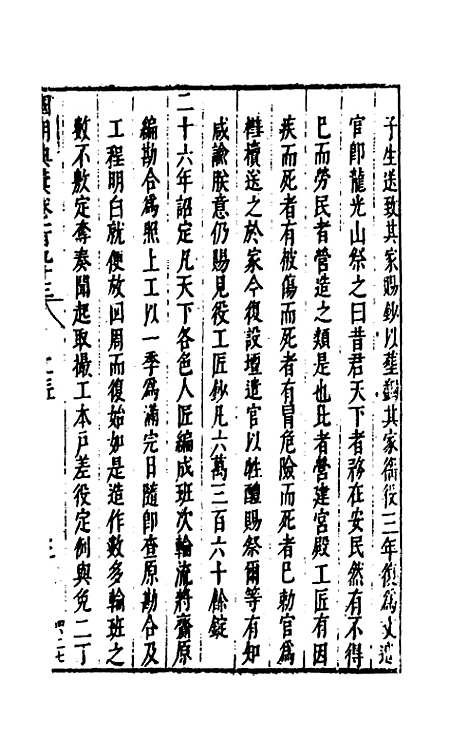 子生送致其家賜鈔以塟蠲其家徭役三年復為文遣
官卽龍光山祭之曰昔君天下者務在安民然有不得
巳而勞民者營造之類是也比者營建宮殿工匠有因
疾而死者有被傷而死者有冒危險而死者巳勅官為
槥櫝送之於家今復設壇遣官以牲醴賜祭爾等有知
咸諭朕意仍賜見役工匠鈔凡六萬三百六十餘錠
二十六年詔定凡天下各色人匠編成班次輪流將齎原
編勘合為照上工以一季為滿完日隨卽查原勘合及
工程明白就便放回周而復始如是造作數多輪班之
數不敷定奪奏聞起取撮工本戶差役定例與免二丁
國朝典彙卷一百九十三 工五 三